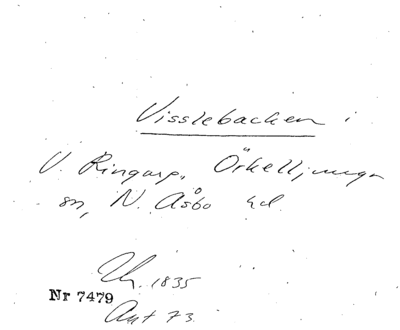 Visslebacken i
V. Ringarp, Örkelljunga
sn, N. Åsbo hd.
1835
Nr 7479
Ant 73